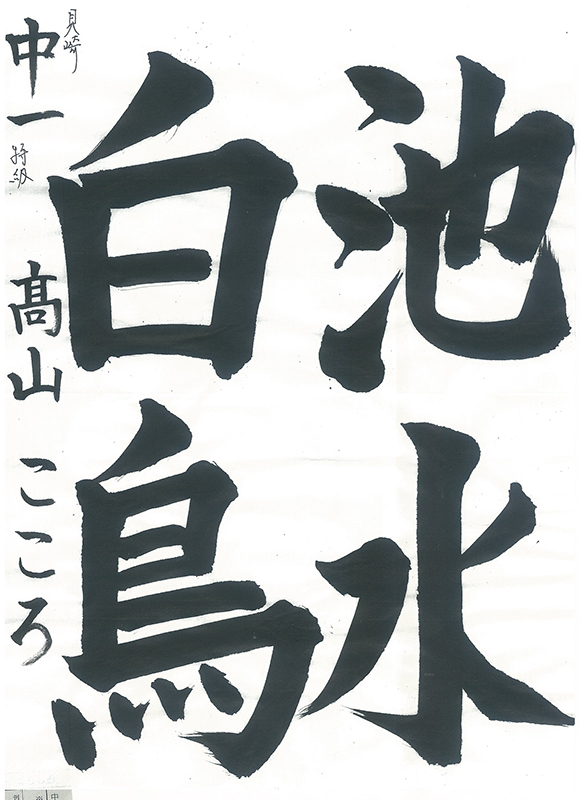 池水
白鳥
中一 特級 髙山 こころ
見崎